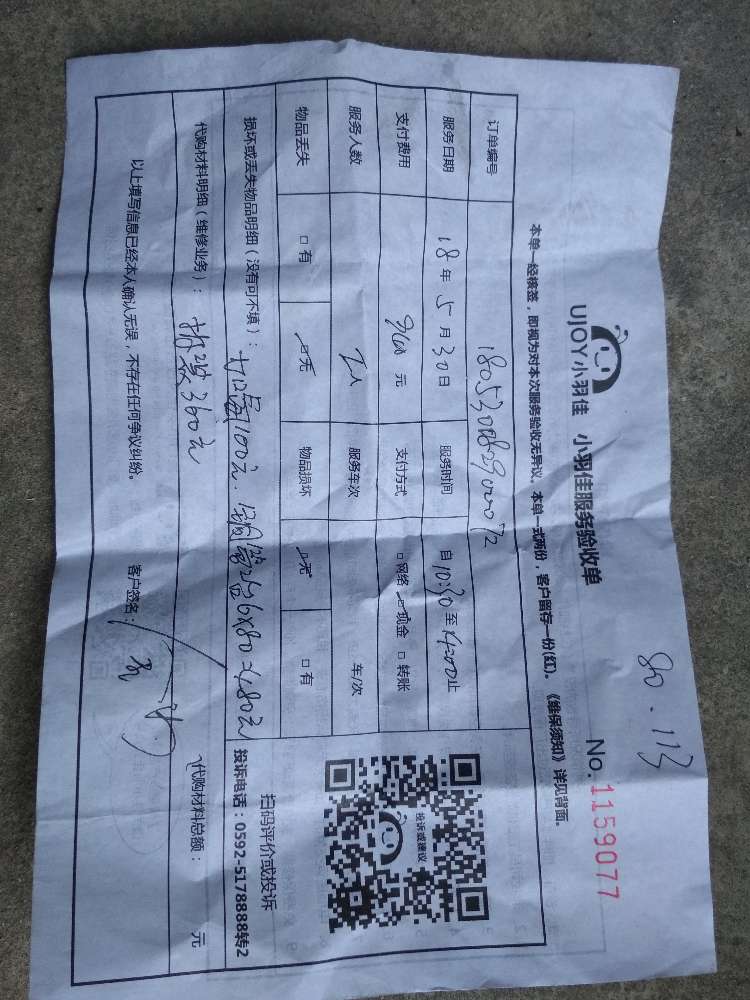 80.113
UJOY小羽佳 小羽佳服务验收单
No.1159077
本单一经核签，即视为对本次服务验收无异议。本单一式两份，客户留存一份(红)。《维保须知》详见背面。
订单编号
服务日期 18年5月30日 服务时间 自10:30至 止
支付费用 元 支付方式 □网络 现金 □转账
服务人数 服务车次 车/次
物品丢失 □有 无 物品损坏 无 □有
损坏或丢失物品明细（没有可不填）： 100元. 6x80=480元
代购材料明细（维修业务）： 360元
代购材料总额： 元
以上填写信息已经本人确认无误，不存在任何争议纠纷。 客户签名：
投诉或建议
扫码评价或投诉
投诉电话：0592-5178888转2